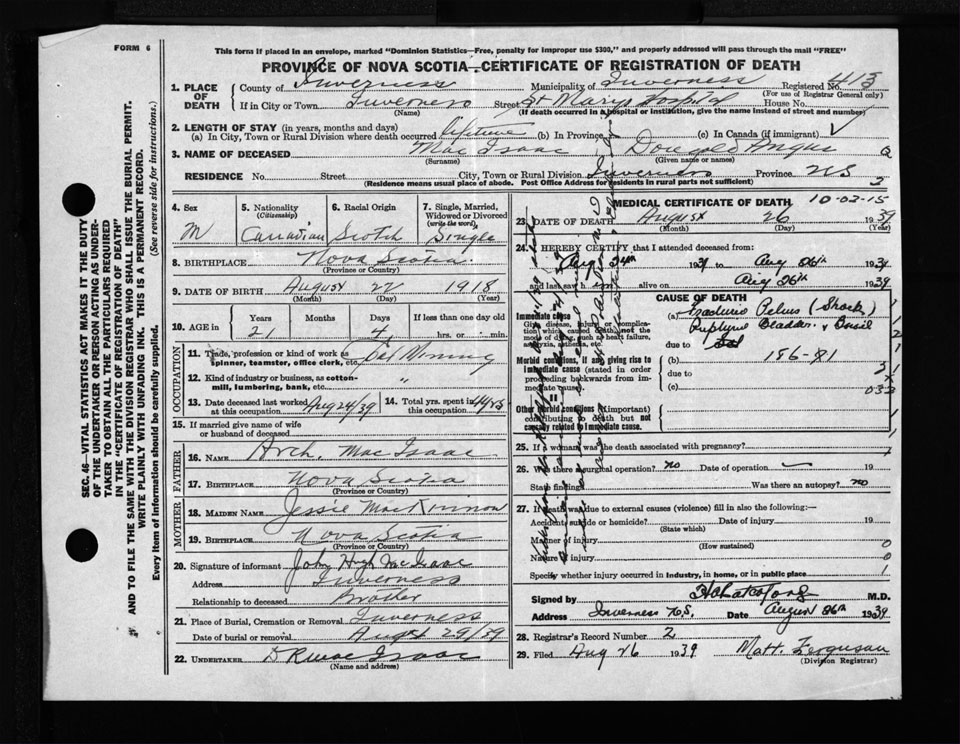 FORM 6
This form if placed in an envelope, marked "Dominion Statistics—Free, penalty for improper use $300," and properly addressed will pass through the mail "FREE"
PROVINCE OF NOVA SCOTIA—CERTIFICATE OF REGISTRATION OF DEATH
1. PLACE OF DEATH County of Inverness Municipality of Inverness Registered No. 413
(For use of Registrar General only)
If in City or Town Inverness Street St Marys Hospital House No.
(Name) (If death occurred in a hospital or institution, give the name instead of street and number)
2. LENGTH OF STAY (in years, months and days)
(a) In City, Town or Rural Division where death occurred lifetime (b) In Province (c) In Canada (if immigrant)
3. NAME OF DECEASED Mac Isaac Dougold Angus
(Surname) (Given name or names)
RESIDENCE No. Street City, Town or Rural Division Inverness Province NS
(Residence means usual place of abode. Post Office Address for residents in rural parts not sufficient)
SEC. 46—VITAL STATISTICS ACT MAKES IT THE DUTY
OF THE UNDERTAKER OR PERSON ACTING AS UNDER-
TAKER TO OBTAIN ALL THE PARTICULARS REQUIRED
IN THE "CERTIFICATE OF REGISTRATION OF DEATH"
AND TO FILE THE SAME WITH THE DIVISION REGISTRAR WHO SHALL ISSUE THE BURIAL PERMIT.
WRITE PLAINLY WITH UNFADING INK. THIS IS A PERMANENT RECORD.
Every item of information should be carefully supplied. (See reverse side for instructions.)
4. Sex 5. Nationality (Citizenship) 6. Racial Origin 7. Single, Married, Widowed or Divorced (write the word)
M Canadian Scotch Single
8. BIRTHPLACE Nova Scotia
(Province or Country)
9. DATE OF BIRTH August 22 1918
(Month) (Day) (Year)
10. AGE in Years Months Days If less than one day old
21 4 hrs. or min.
OCCUPATION
11. Trade, profession or kind of work as spinner, teamster, office clerk, etc. Coal Mining
12. Kind of industry or business, as cotton-mill, lumbering, bank, etc. "
13. Date deceased last worked at this occupation Aug 24/39 14. Total yrs. spent in this occupation
15. If married give name of wife or husband of deceased
FATHER
16. NAME Arch. Mac Isaac
17. BIRTHPLACE Nova Scotia
(Province or Country)
MOTHER
18. MAIDEN NAME Jessie MacKinnon
19. BIRTHPLACE Nova Scotia
(Province or Country)
20. Signature of informant John Hugh MacIsaac
Address Inverness
Relationship to deceased Brother
21. Place of Burial, Cremation or Removal Inverness
Date of burial or removal August 29/39
22. UNDERTAKER D R MacIsaac
(Name and address)
MEDICAL CERTIFICATE OF DEATH 10-02-15
23. DATE OF DEATH August 26 1939
(Month) (Day) (Year)
24. I HEREBY CERTIFY that I attended deceased from
Aug 24th 1939 to Aug 26th 1939
and last saw h im alive on Aug 26th 1939
CAUSE OF DEATH
Immediate cause
Give disease, injury or complication which caused death, not the mode of dying, such as heart failure, asphyxia, asthenia, etc.
(a) Fractured Pelvis (Shock)
Rupture Bladder &
due to
Morbid conditions, if any, giving rise to immediate cause (stated in order proceeding backwards from immediate cause)
(b) 186-81
due to
(c)
II
Other morbid conditions (if important) contributing to death but not causally related to immediate cause.
25. If a woman, was the death associated with pregnancy?
26. Was there a surgical operation? no Date of operation 19
State findings Was there an autopsy? no
27. If death was due to external causes (violence) fill in also the following:—
Accident, suicide or homicide? Date of injury 19
(State which)
Manner of injury
(How sustained)
Nature of injury
Specify whether injury occurred in industry, in home, or in public place
Signed by M.D.
Address Inverness N.S. Date August 26th 1939
28. Registrar's Record Number 2
29. Filed Aug 26 1939 Matt. Ferguson
(Division Registrar)